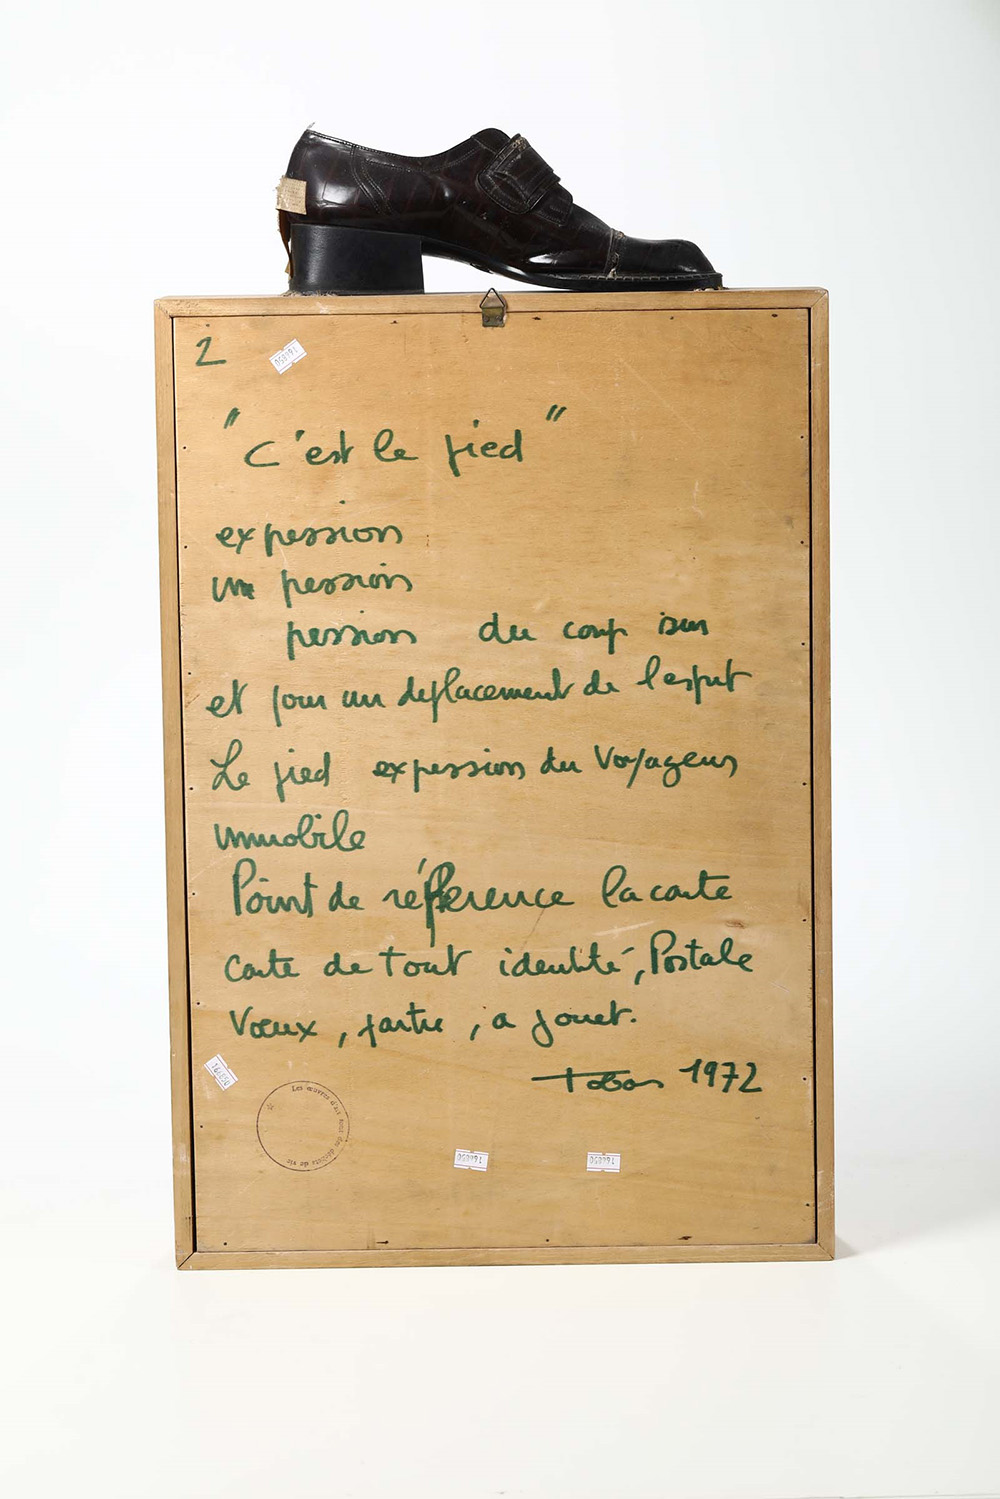 2
166850
"c'est le pied"
expession
un pession
pession du coup
et pour un deplacement de l'esprit
Le pied expession du Voyageurs
immobile
Point de référence la carte
carte de tout identité, Postale
Vœux, partie, a jouet.
Tobas 1972
166850
Les œuvres d'art sont des déchets de vie
166850
166850